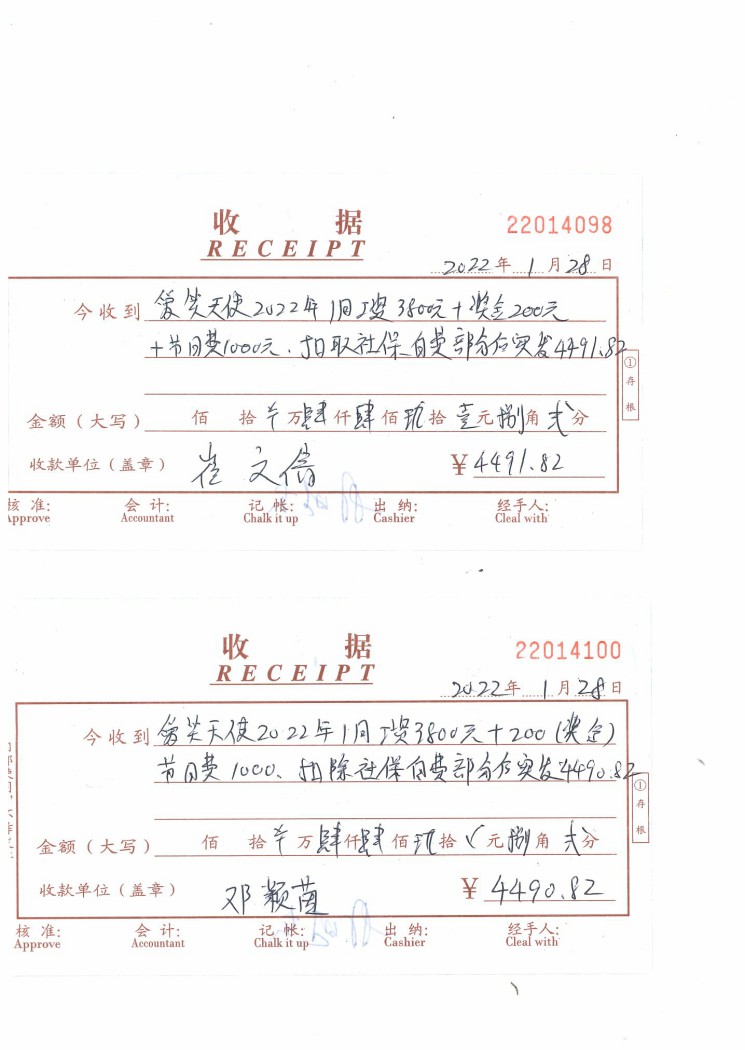 收 据
RECEIPT
22014098
2022年1月28日
今收到 爱笑天使2022年1月工资3800元+奖金200元
+节日费1000元、扣取社保自费部分后实发4491.82
①存根
金额(大写) 佰 拾 万肆仟肆佰玖拾壹元捌角贰分
收款单位(盖章) 崔文倩 ¥4491.82
核 准: 会 计: 记 帐: 出 纳: 经手人:
Approve Accountant Chalk it up Cashier Cleal with
收 据
RECEIPT
22014100
2022年1月28日
今收到 爱笑天使2022年1月工资3800元+200(奖金)
节日费1000、扣除社保自费部分后实发4490.82
①存根
金额(大写) 佰 拾 万肆仟肆佰玖拾 元捌角贰分
收款单位(盖章) 邓颖茵 ¥4490.82
核 准: 会 计: 记 帐: 出 纳: 经手人:
Approve Accountant Chalk it up Cashier Cleal with